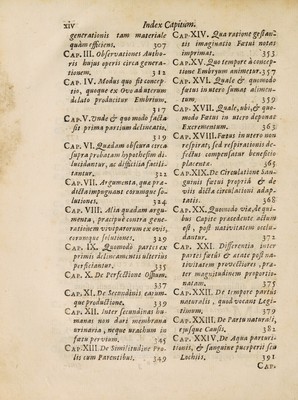 xiv Index Capitum.
generationis tam materiale
quàm efficiens. 307
CAP. III. Observationes Autho-
ris hujus operis circa genera-
tionem. 312
CAP. IV. Modus quo fit concep-
tio, quoque ex Ovo ad uterum
delato producitur Embrium.
317
CAP. V. Unde & quo modo facta
sit prima partium delineatio,
319
CAP. VI. Quædam obscura circa
supra probatam hypothesim di-
luuntur, ac difficilia facilita-
tantur. 322
CAP. VII. Argumenta, quæ præ-
dicta impugnant eorumque so-
lutiones. 324
CAP. VIII. Alia quædam argu-
menta, præcipuè contra gene-
rationem viviparorum ex ovis,
eorumque solutiones. 329
CAP. IX. Quomodò partes ex
primis delineamentis ulterius
perficiantur. 335
CAP. X. De Perfectione Ossium.
337
CAP. XI. De Secundinis earum-
que productione. 339
CAP. XII. Inter secundinas hu-
manas non dari membrana
urinaria, neque urachum in
fœtu pervium. 345
CAP. XIII. De Similitudine Pro-
lis cum Parentibus. 349
CAP. XIV. Qua ratione gestan-
tis imaginatio Fœtus notas
imprimat. 353
CAP. XV. Quo tempore à concep-
tione Embryum animetur. 357
CAP. XVI. Quibus & quomo-
do Fœtus in utero sumat alimen-
tum. 359
CAP. XVII. Quale, ubi, & quo-
modo Fœtus in utero deponat
Excrementum. 363
CAP. XVIII. Fœtus in utero non
respirat; sed respirationis de-
fectus compensatur beneficio
placentæ. 365
CAP. XIX. De Circulatione San-
guinis fœtui propriâ & de
viis dicta circulationi adap-
tatis. 368
CAP. XX. Quomodo via, de qui-
bus Capite præcedente actum
est, post nativitatem occlu-
dantur. 372
CAP. XXI. Differentia inter
partes fœtûs & ætate post na-
tivitatem provectiores, præ-
ter magnitudinem proportio-
natam. 375
CAP. XXII. De tempore partûs
naturalis, quod vocant Legi-
timum. 379
CAP. XXIII. De Partu naturali,
ejusque Causis. 382
CAP. XXIV. De Aqua parturi-
tionis, & sanguine puerperii seu
Lochiis. 391
CAP.